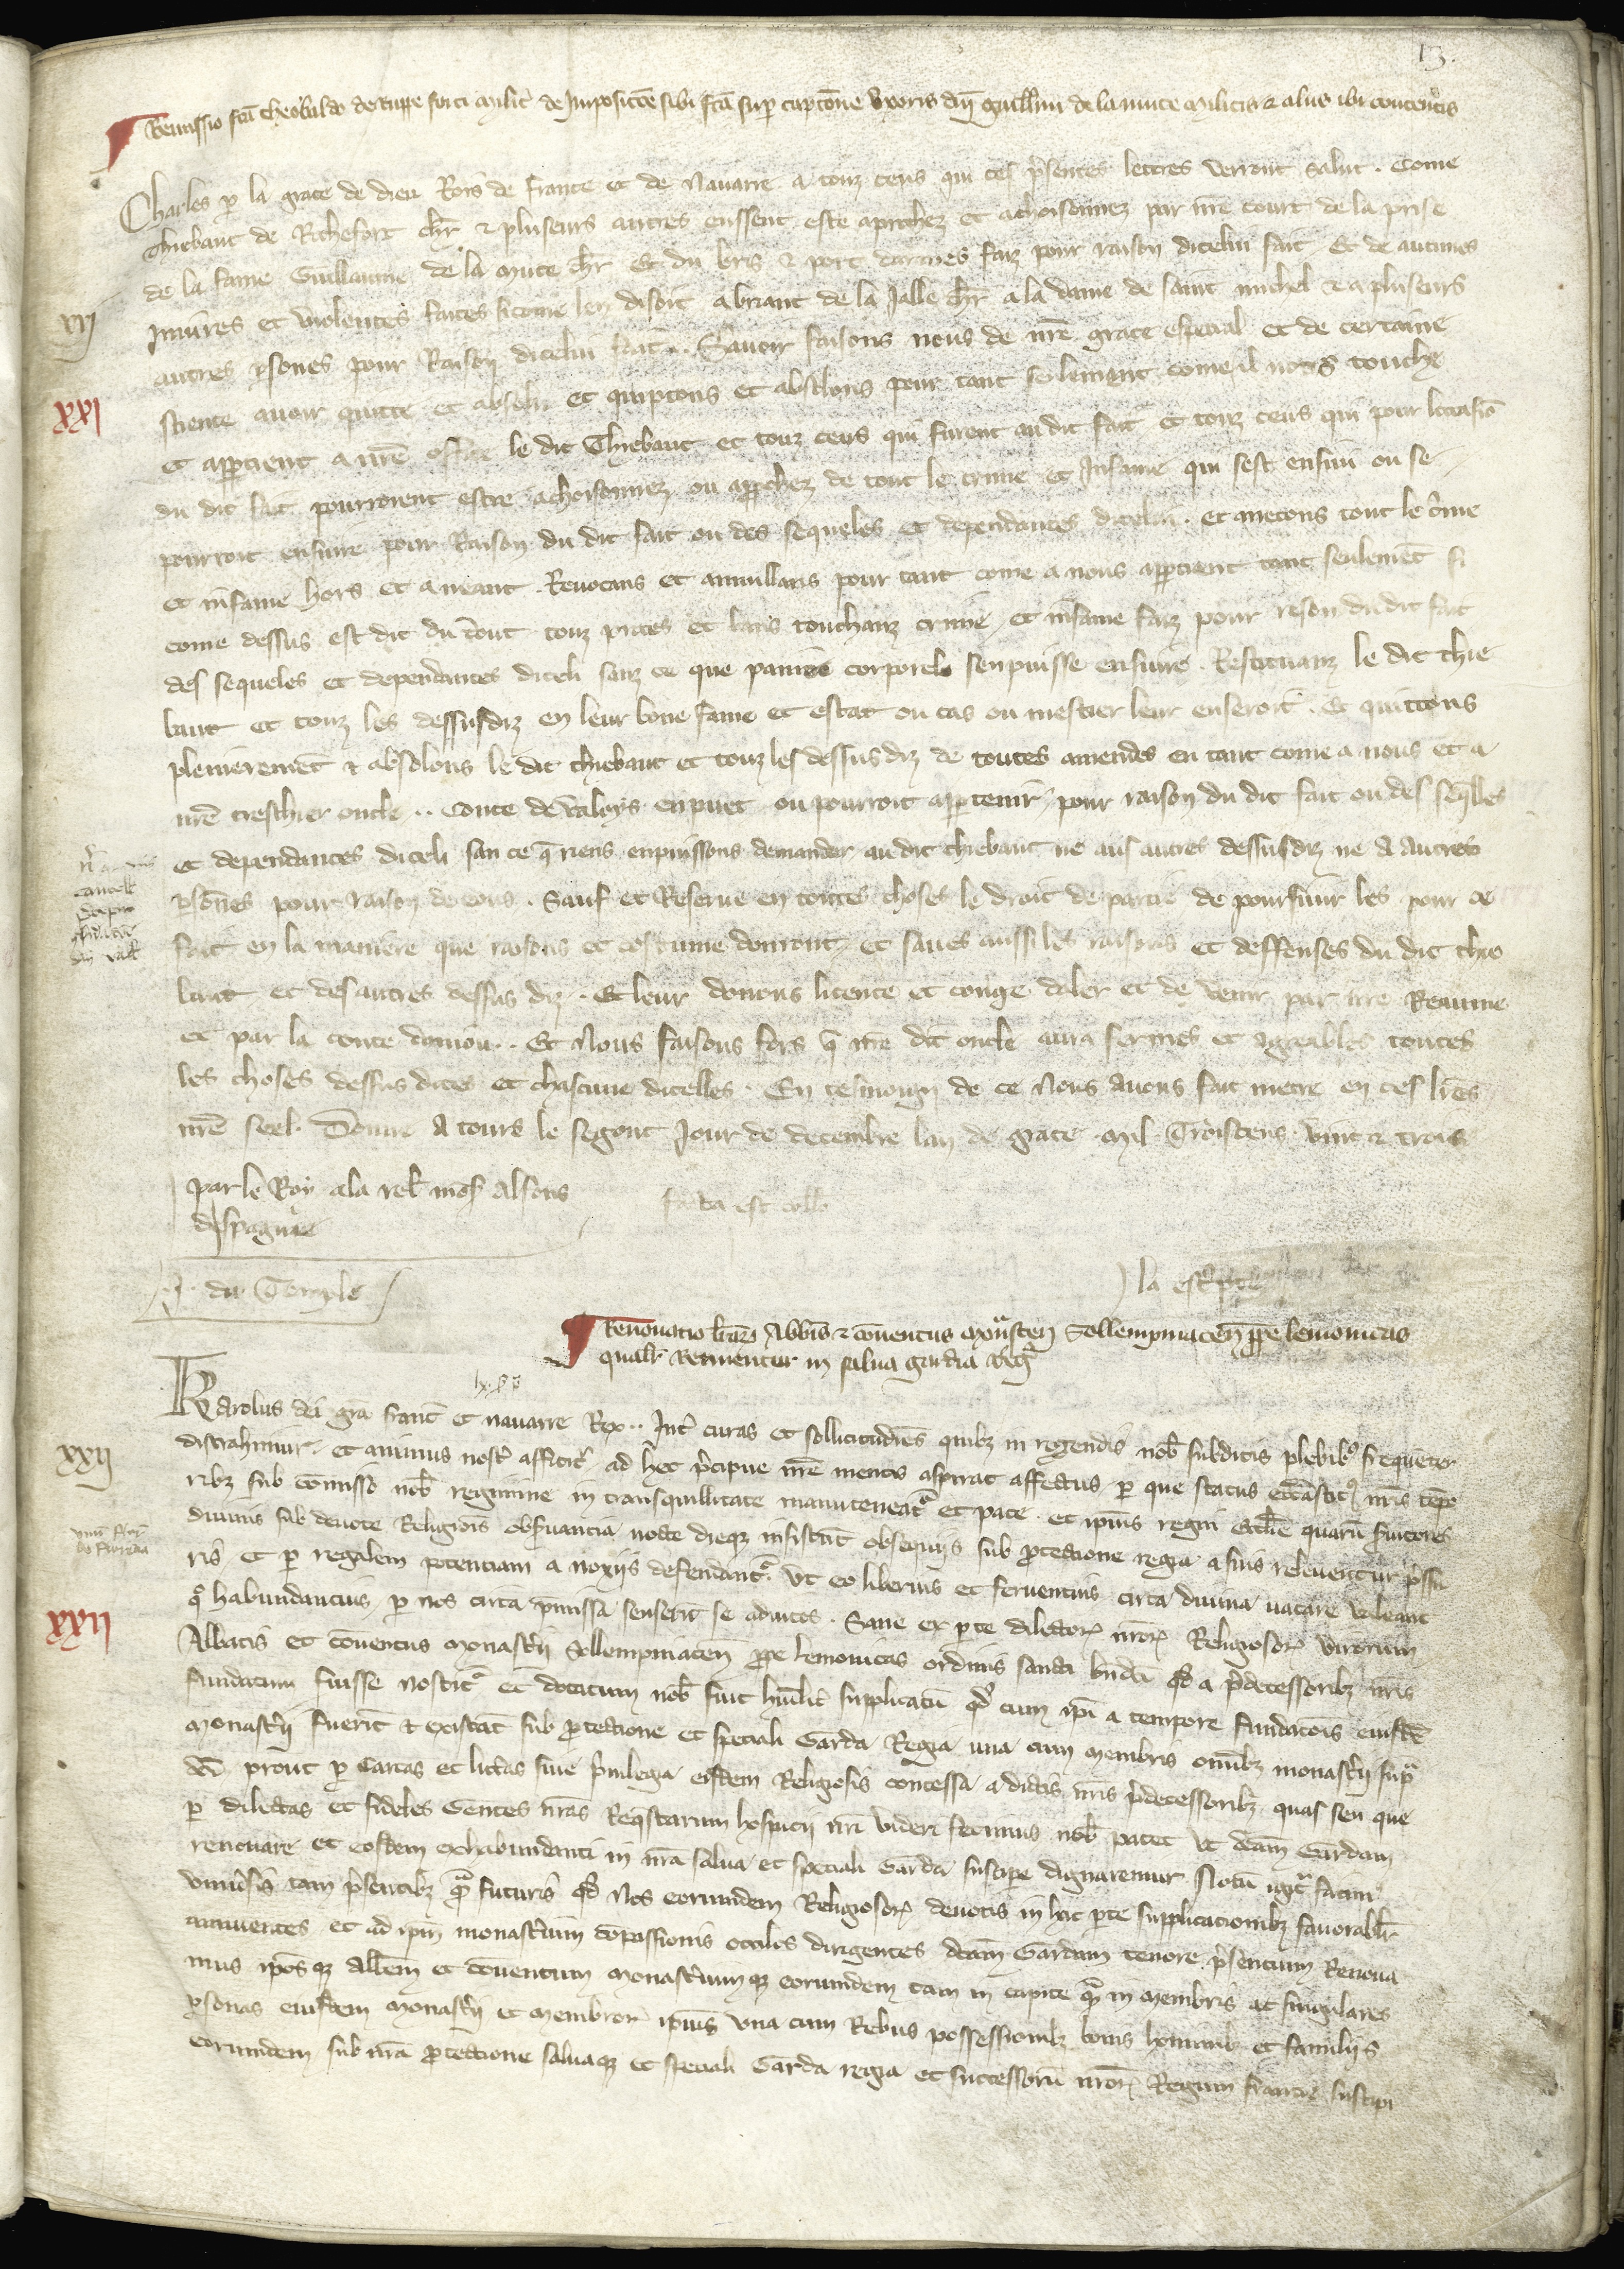 13.
Remissio fca Theobaldo de Ruppe forti milit de Impositoe sibi fca sup captione Uxoris dni Guillmi de la muce militis & aliis ibi contentis
Charles p la grace de dieu Rois de France et de Navarre a touz ceus qui ces psentes lettres verront salut . Come
Thiebaut de Rochefort chr & pluseurs autres eussent este aprochez et achoisonnez par nre court de la prise
de la fame Guillaume de la Muce chr Et du bris & port darmes faiz pour raison dicelui fait Et de aucunes
XXI
Iniures et violences faites si come len disoit a briant de la Jalle chr a la dame de saint michel & a pluseurs
autres psones pour Raison dicelui fait .. Savoir faisons nous de nre grace especial et de certaine
XXI
science avoir quitte et absolu et quiptons et absolons pour tant seulemant come il nous touche
et appartient a nre office le dit Thiebaut et touz ceus qui furent au dit fait et touz ceus qui pour loccasio
du dit fait pourroient estre achoisonnez ou approchez de tout le crime et Infame qui sest ensuy ou se
pourroit ensuivre pour Raison du dit fait ou des sequeles et dependances dicelui . et metons tout le crime
et infame hors et a neant . Revocans et annullans pour tant come a nous appartient tant seulemet si
come dessus est dit du tout touz proces et bans touchanz crime et infame faiz pour reson du dit fait
des sequeles et dependances diceli sanz ce que painne corporele sen puisse ensuire . Restituanz le dit Thie
baut et touz les dessusdiz en leur bone fame et estat ou cas ou mestier leur en seroit . Et quittons
plenieremet & absolons le dit Thiebaut et touz les dessus diz de toutes amendes en tant come a nous et a
nre treschier oncle .. Conte de Valoys en puet ou pourroit appartenir pour raison du dit fait ou des seqles
et dependances diceli san ce q riens en puissons demander au dit Thiebaut ne aus autres dessusdiz ne a autres
psones pour raison de eus . Sauf et Reserve en toutes choses le droit de partie de poursuir les pour ce
fait en la maniere que raisons et costume donront et sauves aussi les raisons et deffenses du dit Thie
baut et des autres dessus diz . Et leur donons licence et congie daler et de venir par nre Reaume
et par la conte danjou . . Et Nous faisons fors q nre dit oncle aura fermes et agreables toutes
les choses dessus dites et chascune dicelles . En tesmoing de ce Nous avons fait metre en ces lres
nre seel . Donne a Tours le segont Jour de decembre lan de grace mil Troiscens vint & trois
par le Roy a la rel mons Alfons
despagne
facta est collo
J. du Temple
la escripte
Renovatio lrar Abbis & conventus monasten Sollempniacen prope lemovicas
qualr retinentur in salva gardia Reg
Karolus dei gra Franc et navarre Rex . . Int curas et sollicitudies quibz in regendis nob subditis plebib frequeter
XXII
distrahimur et animus nost afficit ad hec pcipue nre mentis aspirat affectus p que status ecclasticus nris tepo
ribz sub comisso nob regimine in transquillitate manuteneat et pace et ipius regni Ecclie quaru svitores
divinis sub devote Religiois obsvancia nocte dieqz insistut obsequiis sub ptectione regia a suis releventur pssu
ris et p regalem potenciam a noxiis defendant . Ut eo liberius et ferventius circa divina vacare valeant
XXII
quo habundancius p nos circa pmissa senserit se adiutos . Sane ex pte dilector nror Religiosor virorum
Abbatis et coventus monastii Sollempniacen ppe lemovicas ordinis sancti bndci qd a pdecessoribz nris
fundatum fuisse noscit et dotatum nob fuit humilit supplicatu qd cum ipi a tempore fundatois eiusde
monastii fuerit & existat sub ptectione et speciali Garda Regia una cum membris omibz monastii sup
dci prout p Cartas et litteras sive pvilegia eisdem Religiosis concessa a dictis nris pdecessoribz quas seu que
p dilectas et fideles Gentes nras Requestarum hospicii nri videri fecimus nob patet ut dcam Gardam
renovare et eosdem exhabundanti in nra salva et speciali Garda suscipe dignaremur Notu igit facim
univsis tam psentibz qm futuris qd Nos eorumdem Religiosor devotis in hac pte supplicationibz favorablr
annuentes et ad ipm monastium copassionis occulos dirigentes dcam Gardam tenore psencium Renova
mus ipos qz Abbem et conventum monastiumqz eorumdem tam in capite qm in membris ac singulares
psonas eiusdem monastii et membror ipius una cum Rebus possessionibz bonis hominib et familiis
eorumdem sub nra ptectione salvaqz et speciali Garda regia et successoru nror Regum francie suscipi